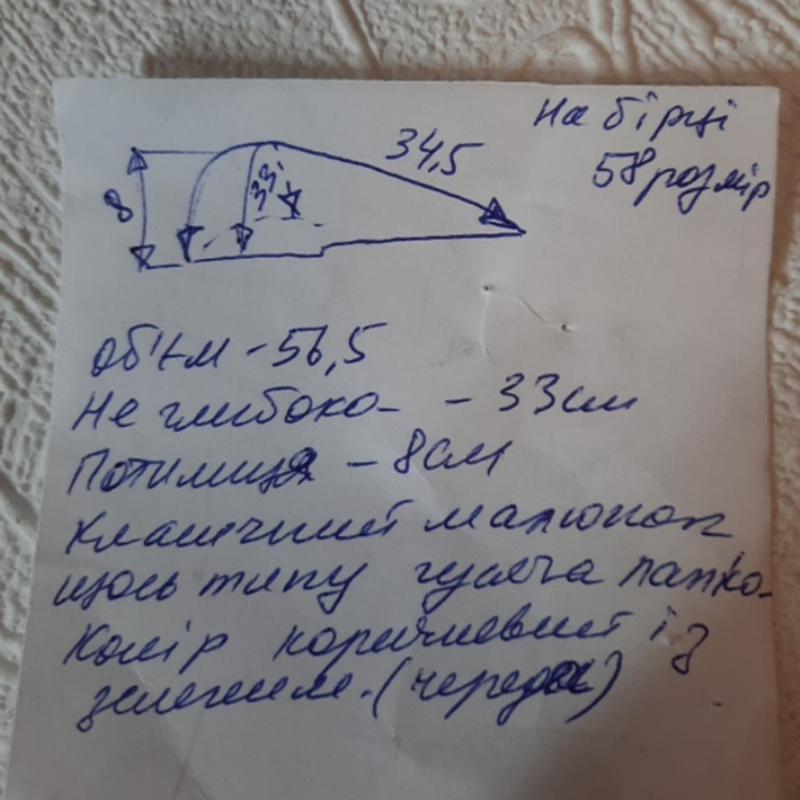 На бірці
58 розмір
34,5
33
8
об'єм - 56,5
Не глибоко - - 33см
Потилиця - 8см
Класичний малюнок
щось типу гусяча лапка.
Колір коричневий і з
зеленим. (череда)